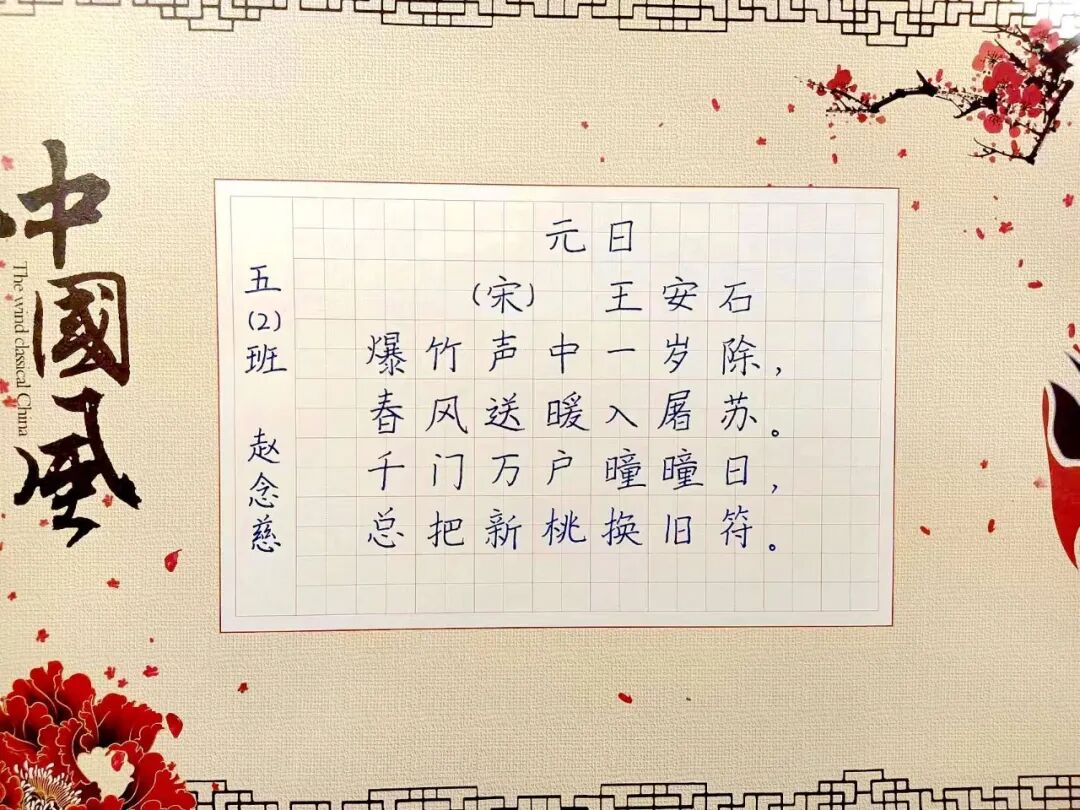 中國風
The wind classical China
元日
(宋) 王安石
爆竹声中一岁除，
春风送暖入屠苏。
千门万户曈曈日，
总把新桃换旧符。
五(2)班 赵念慈